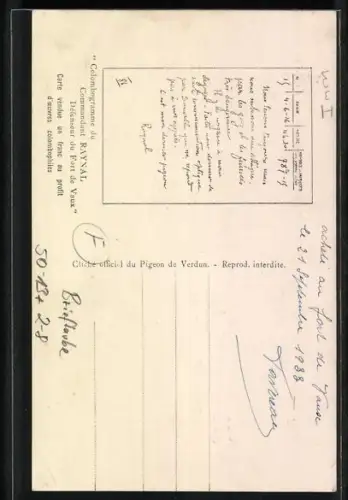 "Colombogramme du
Commandant RAYNAL
Défenseur du Fort de Vaux"
Carte vendue un franc au profit
d'œuvres colombophiles
4-6-16
787-15
Nous tenons toujours, mais
nous subissons une attaque
par les gaz et les fumées
très dangereuse.
Il y a urgence à nous
dégager. Faites-nous donner de
suite communication optique
par Souville, qui ne répond
pas à nos appels.
C'est mon dernier pigeon
Raynal
Cliché officiel du Pigeon de Verdun. - Reprod. interdite.
F
Brieftaube
acheté au fort de Vaux
le 21 Septembre 1938